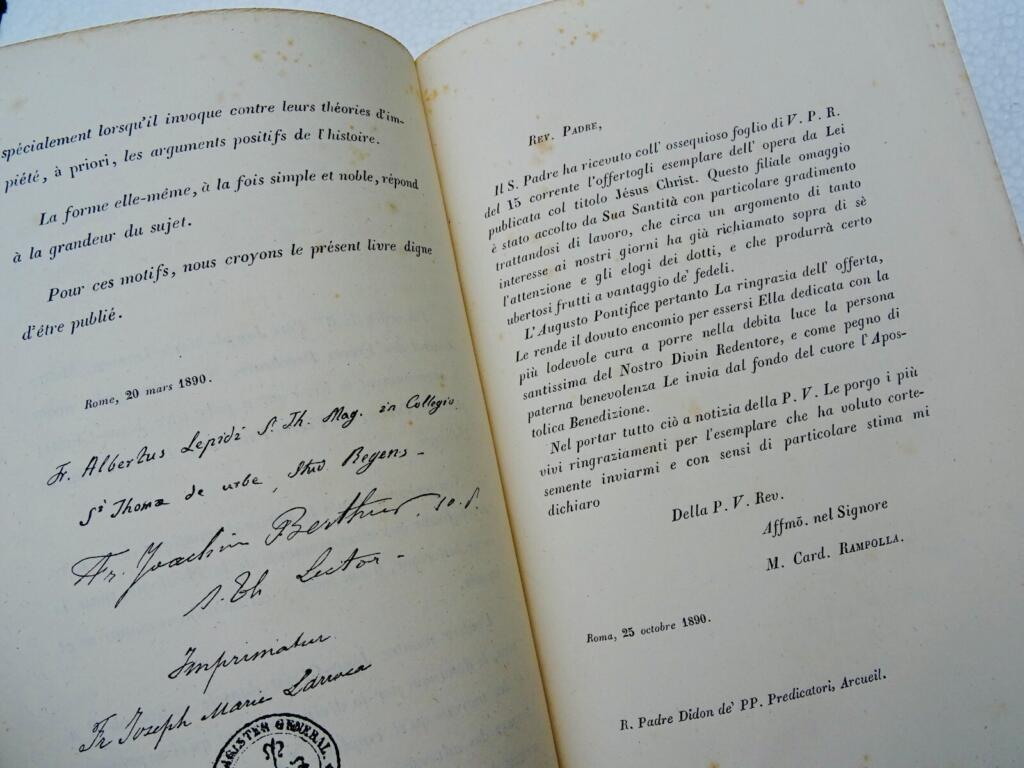 spécialement lorsqu'il invoque contre leurs théories d'im-
piété, à priori, les arguments positifs de l'histoire.
La forme elle-même, à la fois simple et noble, répond
à la grandeur du sujet.
Pour ces motifs, nous croyons le présent livre digne
d'être publié.
Rome, 20 mars 1890.
Fr. Albertus Lepidi S. Th. Mag. in Collegio
Sti Thomæ de urbe, Stud Regens -
Fr. Joachim Berthier. so. p.
S. Th Lector -
Imprimatur
Fr Joseph Marie Larroca
GISTER GENERAL.
REV. PADRE,
Il S. Padre ha ricevuto coll' ossequioso foglio di V. P. R.
del 15 corrente l'offertogli esemplare dell' opera da Lei
publicata col titolo Jésus Christ. Questo filiale omaggio
è stato accolto da Sua Santità con particolare gradimento
trattandosi di lavoro, che circa un argomento di tanto
interesse ai nostri giorni ha già richiamato sopra di sè
l'attenzione e gli elogi dei dotti, e che produrrà certo
ubertosi frutti a vantaggio de' fedeli.
L'Augusto Pontifice pertanto La ringrazia dell' offerta,
Le rende il dovuto encomio per essersi Ella dedicata con la
più lodevole cura a porre nella debita luce la persona
santissima del Nostro Divin Redentore, e come pegno di
paterna benevolenza Le invia dal fondo del cuore l'Apos-
tolica Benedizione.
Nel portar tutto ciò a notizia della P. V. Le porgo i più
vivi ringraziamenti per l'esemplare che ha voluto corte-
semente inviarmi e con sensi di particolare stima mi
dichiaro
Della P. V. Rev.
Affmō. nel Signore
M. Card. RAMPOLLA.
Roma, 25 octobre 1890.
R. Padre Didon de' PP. Predicatori, Arcueil.